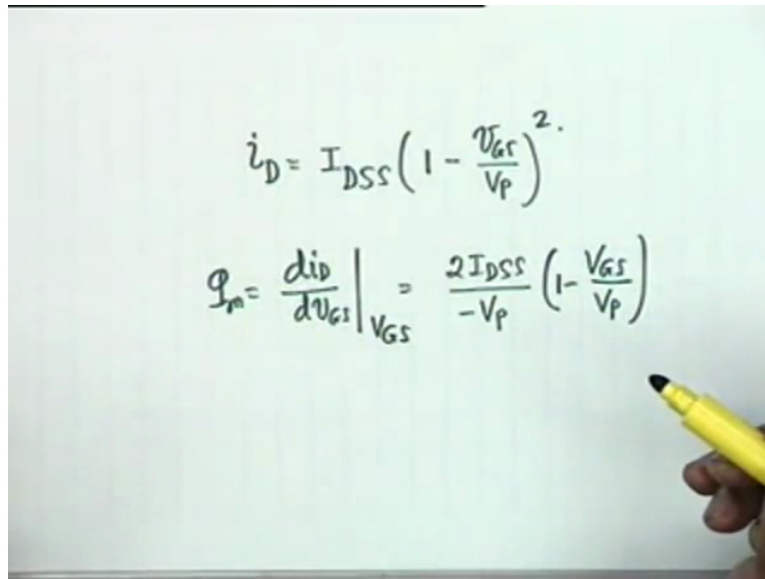 i_D = I_DSS (1 - v_GS / V_P)^2.
g_m = di_D / dv_GS |_V_GS = 2I_DSS / -V_P (1 - V_GS / V_P)